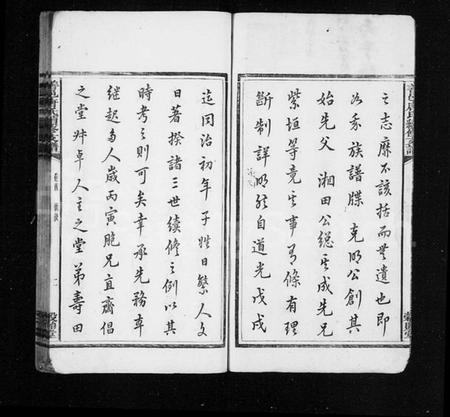 之志靡不該括而無遺也即
吾族譜牒 克明公創其
始先父 湘田公總其成先兄
紫垣等竟其事有條有理
斷制詳明然自道光戊戌
迄同治初年子姓日繁人文
日著揆諸三世續修之例以其
時考之則可矣幸承先務率
繼起有人歲丙寅胞兄直齋倡
之堂姪卓人主之堂弟壽田